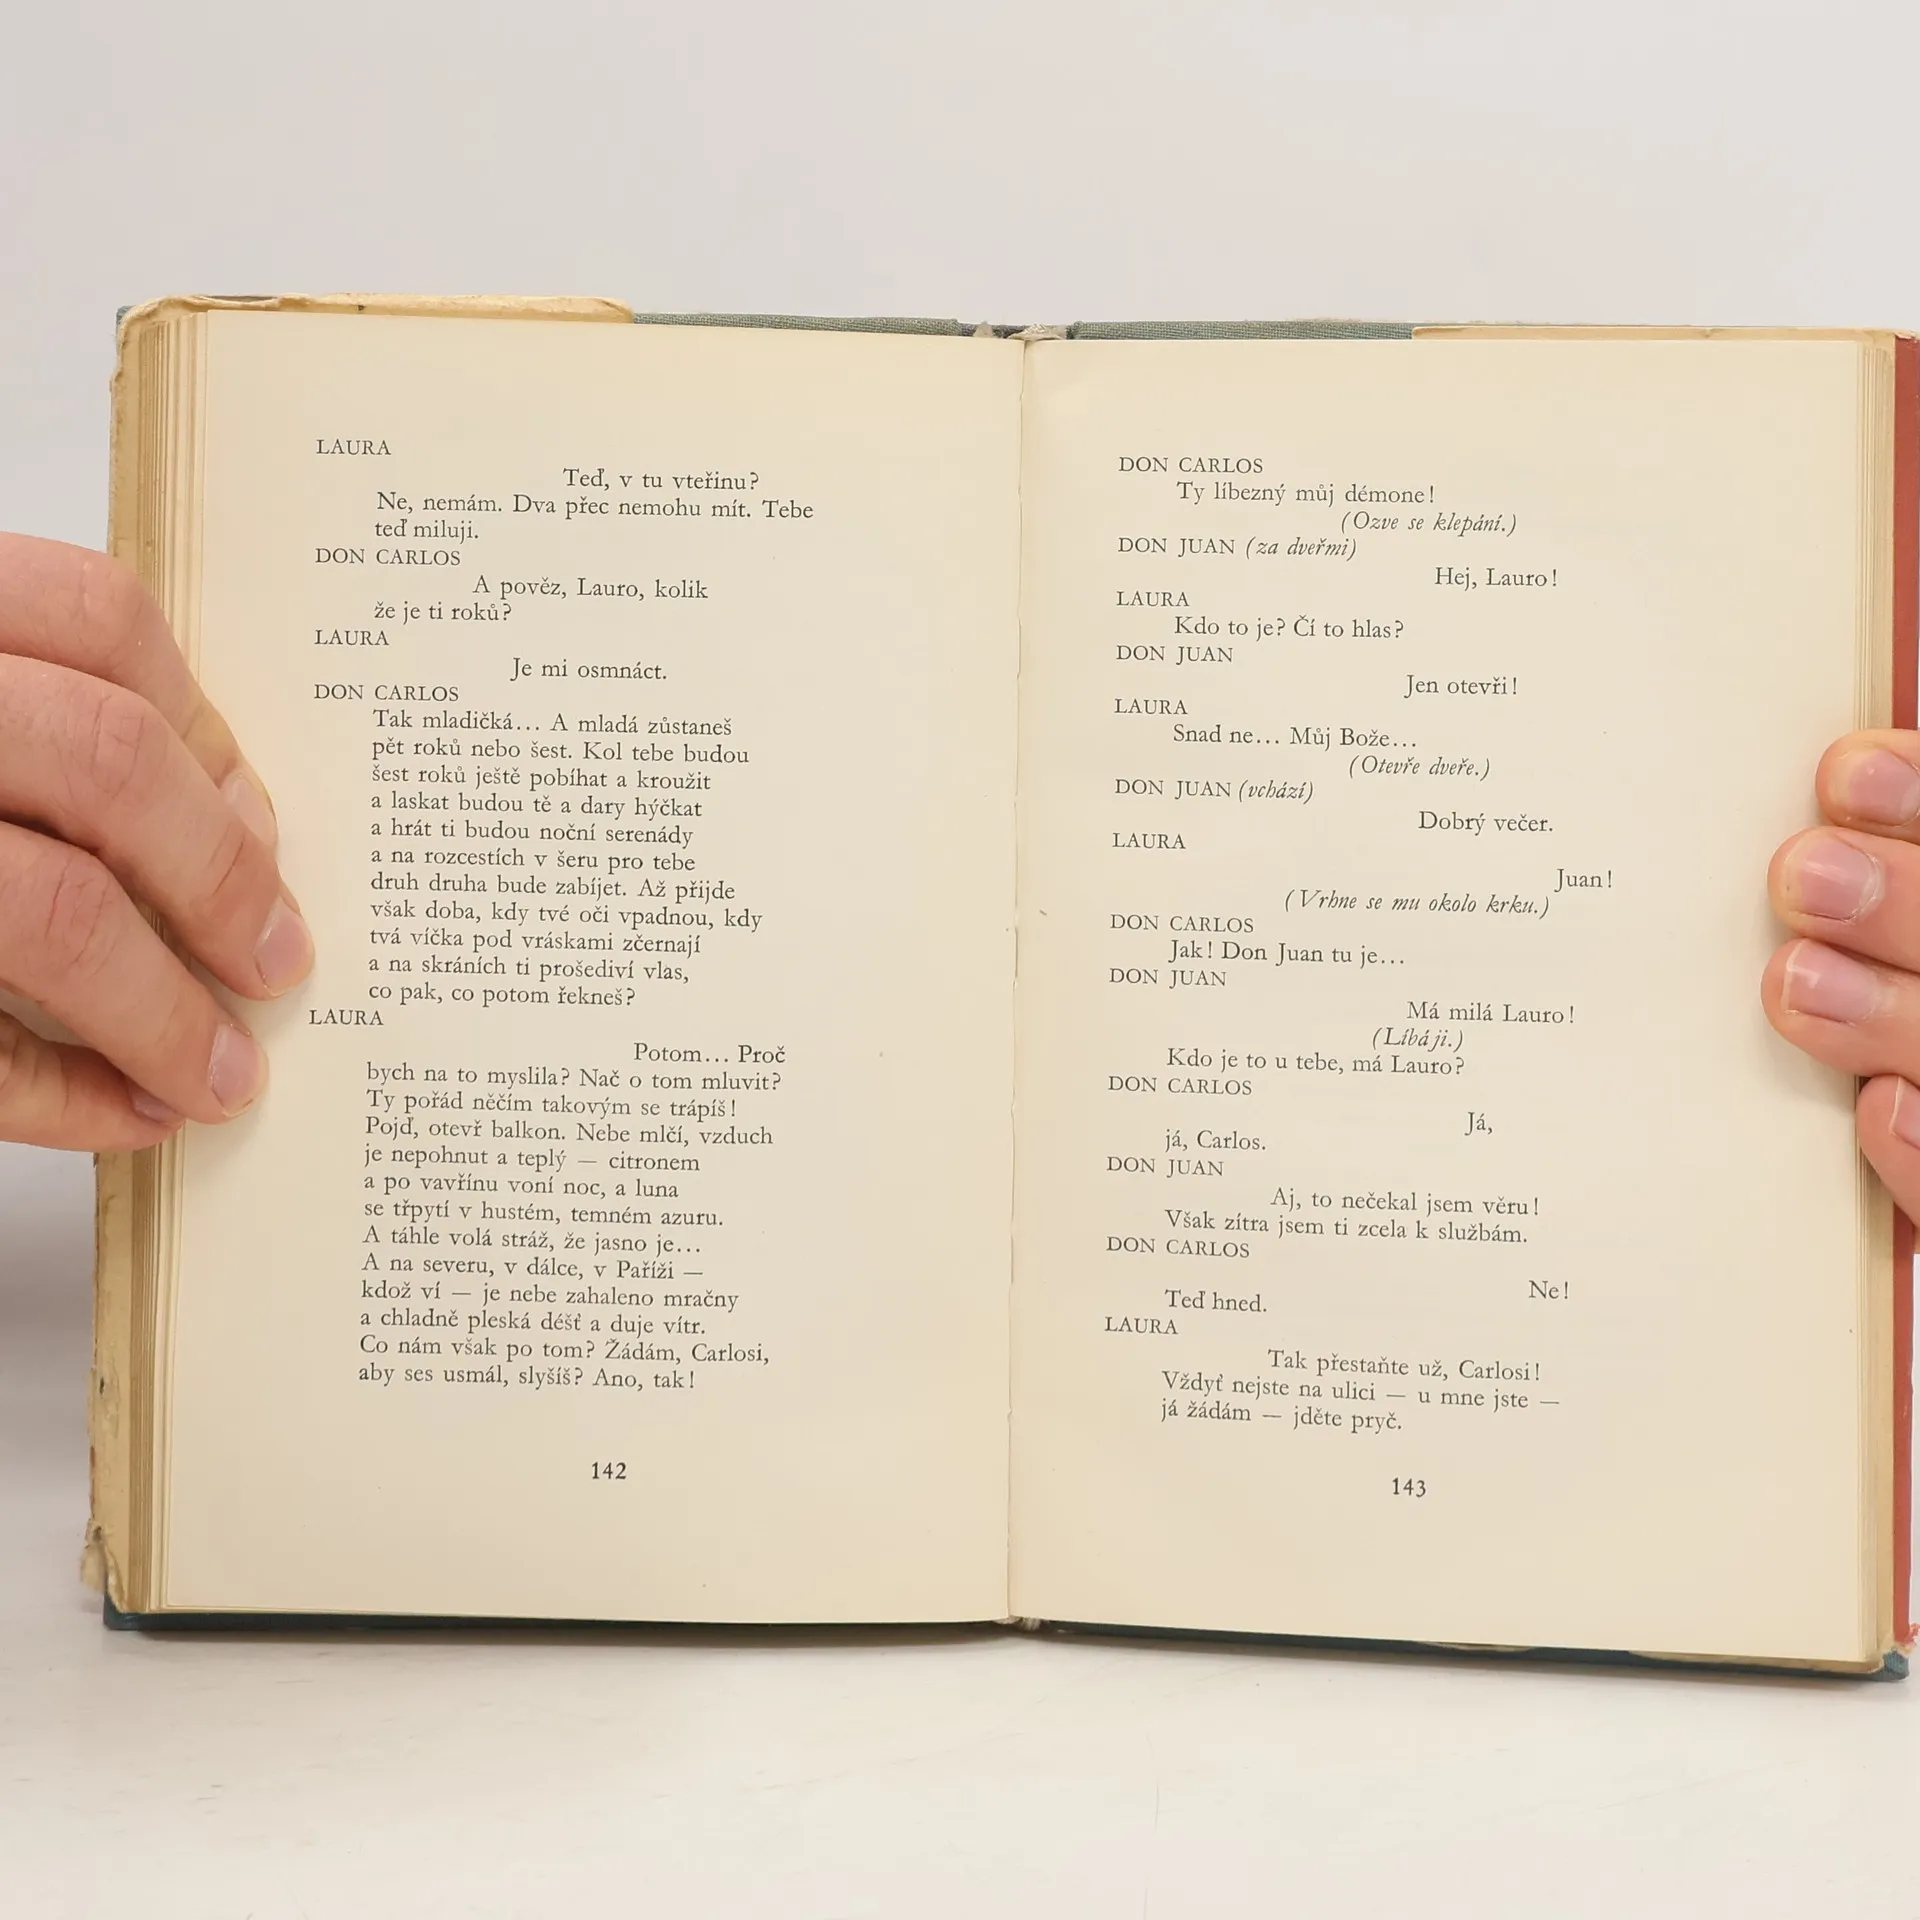 LAURA
Teď, v tu vteřinu?
Ne, nemám. Dva přec nemohu mít. Tebe
teď miluji.
DON CARLOS
A pověz, Lauro, kolik
že je ti roků?
LAURA
Je mi osmnáct.
DON CARLOS
Tak mladičká... A mladá zůstaneš
pět roků nebo šest. Kol tebe budou
šest roků ještě pobíhat a kroužit
a laskat budou tě a dary hýčkat
a hrát ti budou noční serenády
a na rozcestích v šeru pro tebe
druh druha bude zabíjet. Až přijde
však doba, kdy tvé oči vpadnou, kdy
tvá víčka pod vráskami zčernají
a na skráních ti prošediví vlas,
co pak, co potom řekneš?
LAURA
Potom... Proč
bych na to myslila? Nač o tom mluvit?
Ty pořád něčím takovým se trápíš!
Pojď, otevř balkon. Nebe mlčí, vzduch
je nepohnut a teplý — citronem
a po vavřínu voní noc, a luna
se třpytí v hustém, temném azuru.
A táhle volá stráž, že jasno je...
A na severu, v dálce, v Paříži —
kdož ví — je nebe zahaleno mračny
a chladně pleská déšť a duje vítr.
Co nám však po tom? Žádám, Carlosi,
aby ses usmál, slyšíš? Ano, tak!
142
DON CARLOS
Ty líbezný můj démone!
(Ozve se klepání.)
DON JUAN (za dveřmi)
Hej, Lauro!
LAURA
Kdo to je? Čí to hlas?
DON JUAN
Jen otevři!
LAURA
Snad ne... Můj Bože...
(Otevře dveře.)
DON JUAN (vchází)
Dobrý večer.
LAURA
Juan!
(Vrhne se mu okolo krku.)
DON CARLOS
Jak! Don Juan tu je...
DON JUAN
Má milá Lauro!
(Líbá ji.)
Kdo je to u tebe, má Lauro?
DON CARLOS
Já,
já, Carlos.
DON JUAN
Aj, to nečekal jsem věru!
Však zítra jsem ti zcela k službám.
DON CARLOS
Ne!
Teď hned.
LAURA
Tak přestaňte už, Carlosi!
Vždyť nejste na ulici — u mne jste —
já žádám — jděte pryč.
143